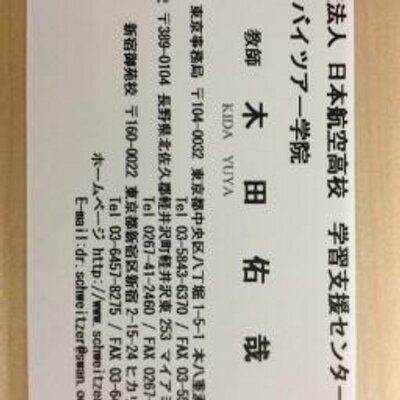 法人 日本航空高校 学習支援センター
バイツアー学院
教師 木田佑哉
KIDA YUYA
東京事務局 〒104-0032 東京都中央区八丁堀1-5-1
Tel 03-5843-6370 / FAX 03-58
〒389-0104 長野県北佐久郡軽井沢町軽井沢東 253 マイアミ
Tel 0267-41-2460 / FAX 0267-
新宿御苑校 〒160-0022 東京都新宿区新宿 2-15-24
Tel 03-6457-8275 / FAX 03-64
ホームページ http://www.schweitzer
E-mail:dr.schweitzer@swan.o